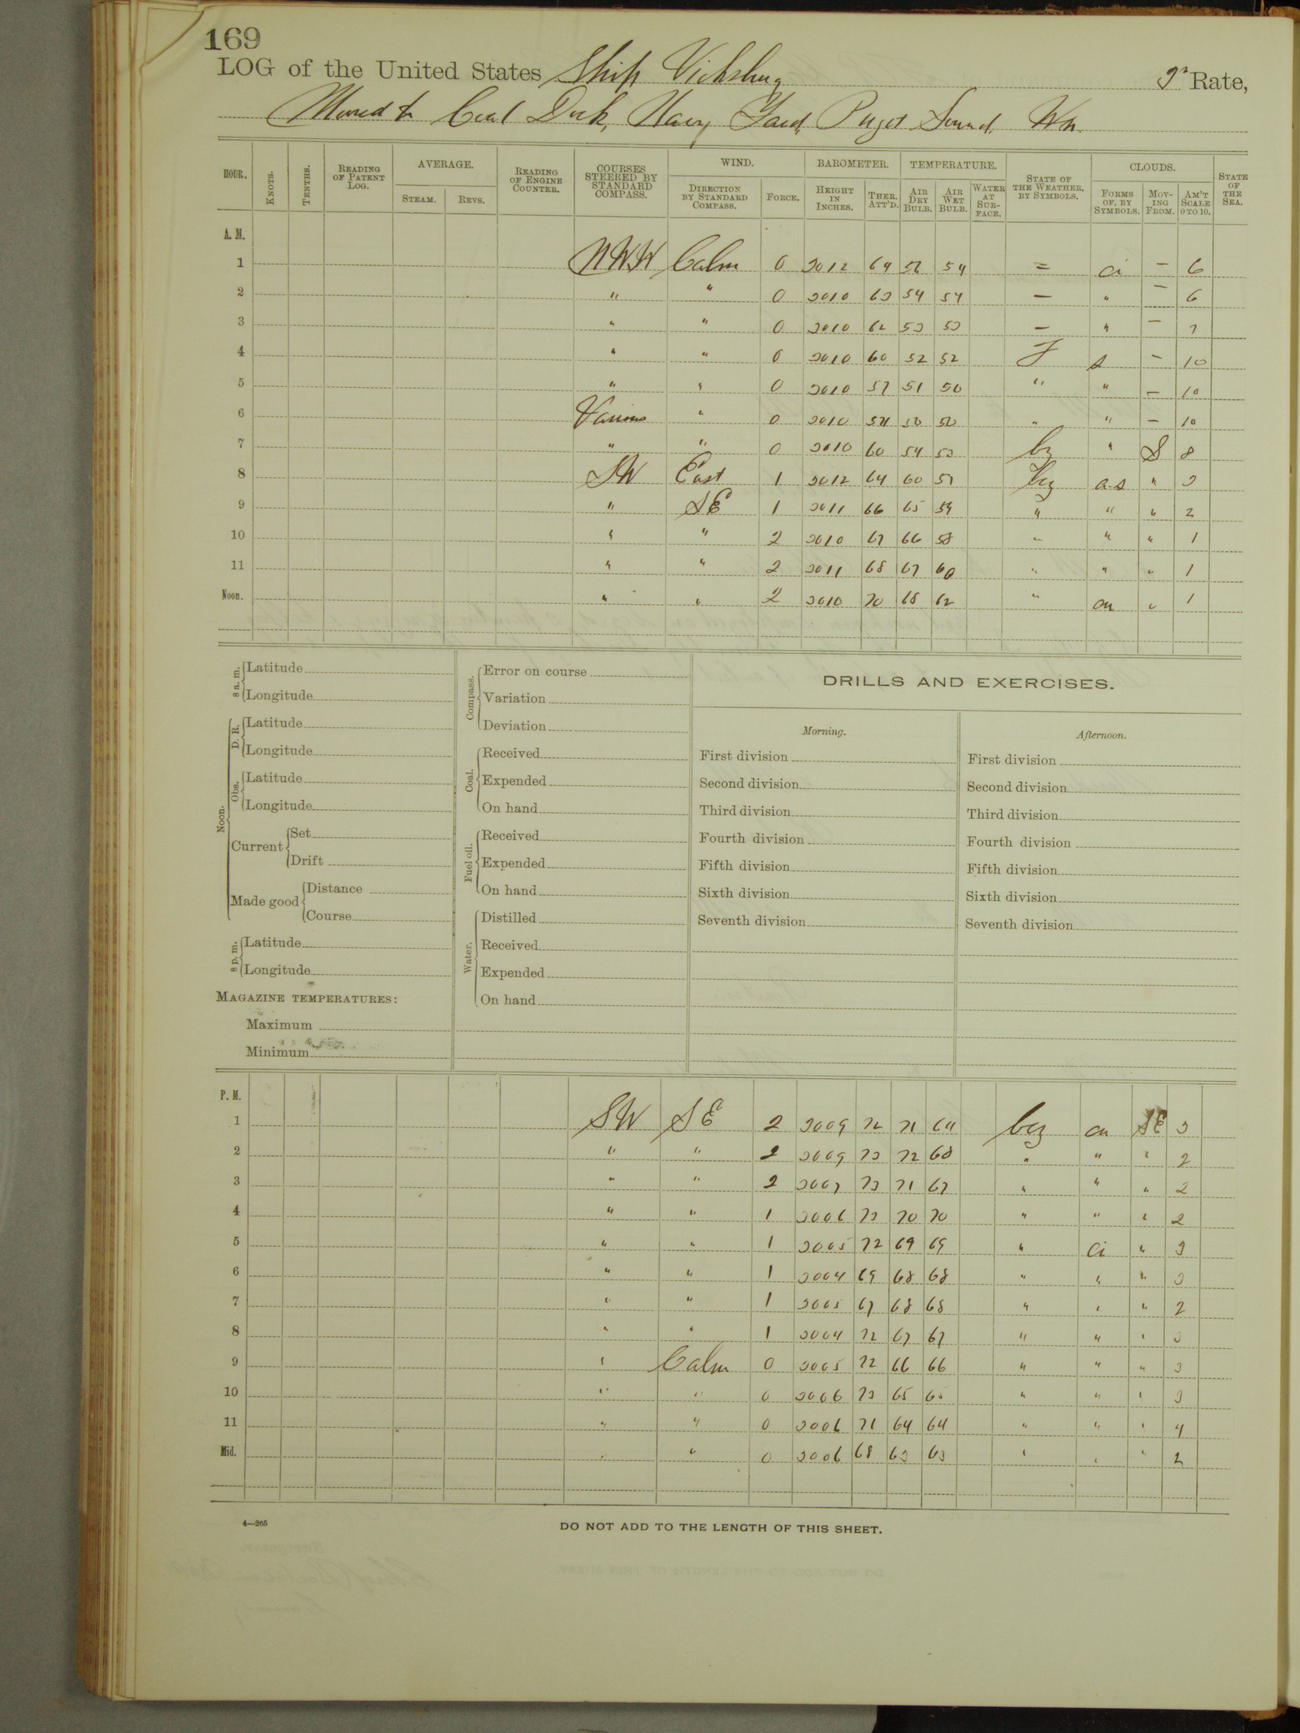 169
LOG of the United States Ship Vicksburg 3ʳ Rate,
Moored to Coal Dock, Navy Yard, Puget Sound, Wn.
HOUR. KNOTS. TENTHS. READING OF PATENT LOG. AVERAGE. STEAM. REVS. READING OF ENGINE COUNTER. COURSES STEERED BY STANDARD COMPASS. WIND. DIRECTION BY STANDARD COMPASS. FORCE. BAROMETER. HEIGHT IN INCHES. THER. ATT'D. TEMPERATURE. AIR DRY BULB. AIR WET BULB. WATER AT SURFACE. STATE OF THE WEATHER, BY SYMBOLS. CLOUDS. FORMS OF, BY SYMBOLS. MOVING FROM. AM'T SCALE 0 TO 10. STATE OF THE SEA.
A. M.
1 NWW Calm 0 3012 64 54 = ci — 6
2 " " 0 3010 63 54 54 — " — 6
3 " " 0 3010 62 53 53 — " — 7
4 " " 0 3010 60 52 52 F s — 10
5 " " 0 3010 57 51 50 " " — 10
6 Various " 0 3010 50 50 " " — 10
7 " " 0 3010 60 54 53 bz " S 8
8 SW East 1 3012 64 60 57 bz a.s " 3
9 " SE 1 3011 66 65 59 " " " 2
10 " " 2 3010 67 66 58 " " " 1
11 " " 2 3011 68 67 60 " " " 1
Noon. " " 2 3010 70 68 62 " cu " 1
8 a. m. Latitude
Longitude
Noon. D. R. Latitude
Longitude
Obs. Latitude
Longitude
Current Set
Drift
Made good Distance
Course
8 p. m. Latitude
Longitude
MAGAZINE TEMPERATURES:
Maximum
Minimum
Compass. Error on course
Variation
Deviation
Coal. Received
Expended
On hand
Fuel oil. Received
Expended
On hand
Water. Distilled
Received
Expended
On hand
DRILLS AND EXERCISES.
Morning.
First division
Second division
Third division
Fourth division
Fifth division
Sixth division
Seventh division
Afternoon.
First division
Second division
Third division
Fourth division
Fifth division
Sixth division
Seventh division
P. M.
1 SW SE 2 3009 72 71 64 bcz cu SE 3
2 " " 2 3009 73 72 68 " " " 2
3 " " 2 3007 73 71 67 " " " 2
4 " " 1 3006 73 70 70 " " " 2
5 " " 1 3005 72 69 69 " ci " 3
6 " " 1 3004 69 68 68 " " " 3
7 " " 1 3005 67 68 68 " " " 2
8 " " 1 3004 72 67 67 " " " 3
9 " Calm 0 3005 72 66 66 " " " 3
10 " " 0 3006 73 65 65 " " " 3
11 " " 0 3006 71 64 64 " " " 4
Mid. " " 0 3006 68 63 63 " " " 2
4—265
DO NOT ADD TO THE LENGTH OF THIS SHEET.